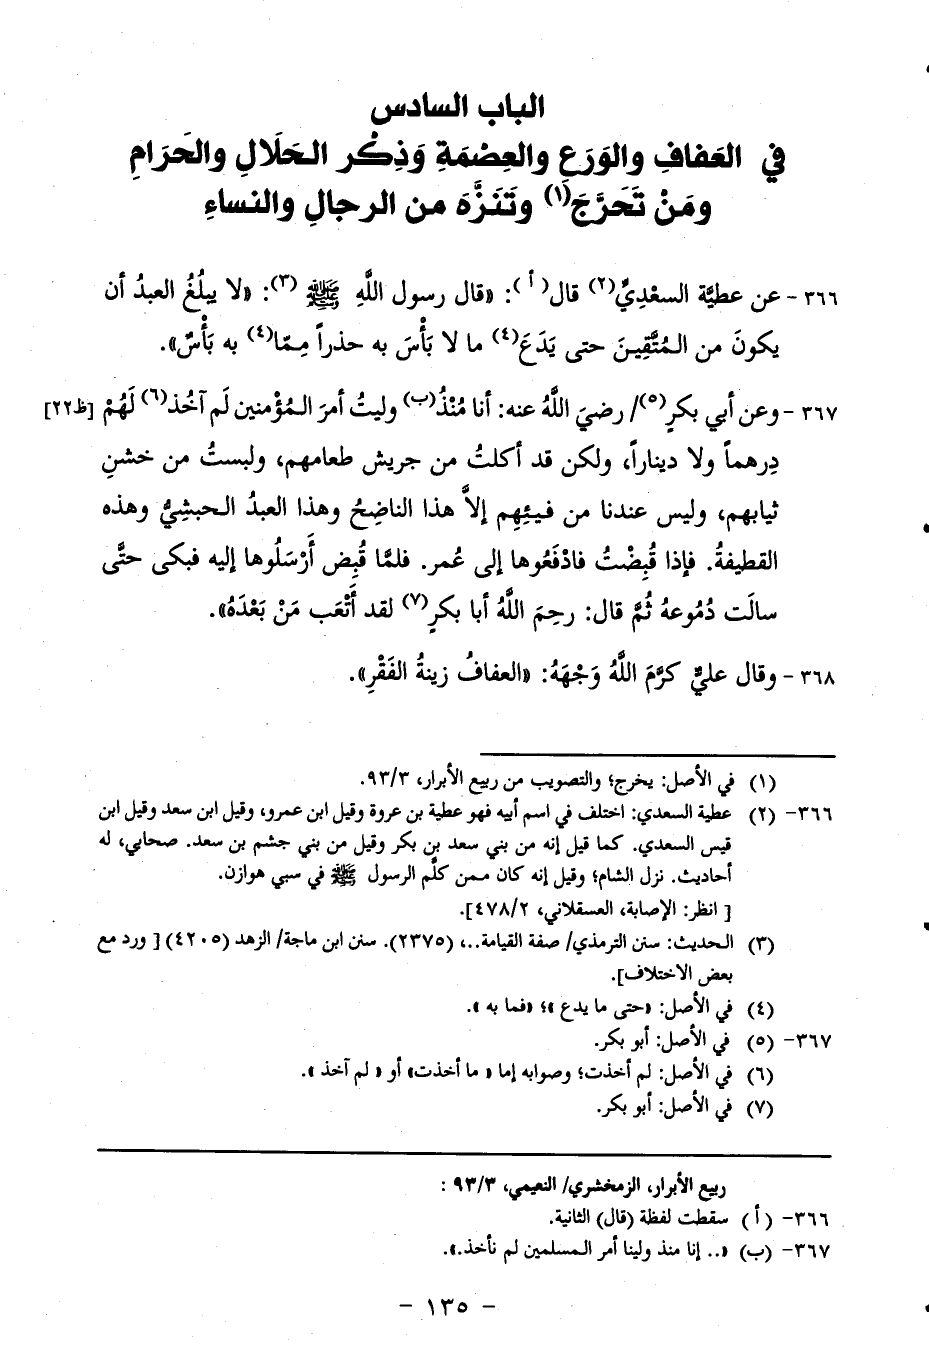 الباب السادس
في العَفافِ والوَرَعِ والعِصْمَةِ وَذِكْرِ الحَلَالِ والحَرَامِ
ومَنْ تَحَرَّجَ(١) وتَنَزَّهَ من الرجالِ والنساءِ
٣٦٦ - عن عطيَّة السعْدِيِّ(٢) قال(أ): «قال رسول اللَّهِ ﷺ(٣): «لا يبلُغُ العبدُ أن
يكونَ من المُتَّقِينَ حتى يَدَعَ(٤) ما لا بَأْسَ به حذراً مِمّا(٤) به بَأْسٌ».
٣٦٧ - وعن أبي بكرٍ(٥)/ رضيَ اللَّهُ عنه: أنا مُنْذُ(ب) وليتُ أمرَ المُؤْمنين لَم آخُذ(٦) لَهُمْ [ظ٢٢]
دِرهماً ولا ديناراً، ولكن قد أكلتُ من جريش طعامهم، ولبستُ من خشنِ
ثيابهم، وليس عندنا من فيئِهِم إلاَّ هذا الناضِحُ وهذا العبدُ الحبشِيُّ وهذه
القطيفةُ. فإذا قُبِضْتُ فادْفَعُوها إلى عُمر. فلمَّا قُبِض أَرْسَلُوها إليه فبكى حتَّى
سالَت دُمُوعهُ ثُمَّ قال: رحِمَ اللَّهُ أبا بكرٍ(٧) لقد أَتْعَب مَنْ بَعْدَهُ».
٣٦٨ - وقال عليٌّ كرَّمَ اللَّهُ وَجْهَهُ: «العفافُ زينةُ الفَقْرِ».
(١) في الأصل: يخرج؛ والتصويب من ربيع الأبرار، ٩٣/٣.
٣٦٦- (٢) عطية السعدي: اختلف في اسم أبيه فهو عطية بن عروة وقيل ابن عمرو، وقيل ابن سعد وقيل ابن
قيس السعدي. كما قيل إنه من بني سعد بن بكر وقيل من بني جشم بن سعد. صحابي، له
أحاديث. نزل الشام؛ وقيل إنه كان ممن كلَّم الرسول ﷺ في سبي هوازن.
[ انظر: الإصابة، العسقلاني، ٤٧٨/٢].
(٣) الحديث: سنن الترمذي/ صفة القيامة..، (٢٣٧٥). سنن ابن ماجة/ الزهد (٤٢٠٥) [ ورد مع
بعض الاختلاف].
(٤) في الأصل: «حتى ما يدع »؛ «فما به ».
٣٦٧- (٥) في الأصل: أبو بكر.
(٦) في الأصل: لم أخذت؛ وصوابه إما « ما أخذت» أو « لم آخذ ».
(٧) في الأصل: أبو بكر.
ربيع الأبرار، الزمخشري/ النعيمي، ٩٣/٣ :
٣٦٦- (أ) سقطت لفظة (قال) الثانية.
٣٦٧- (ب) «.. إنا منذ ولينا أمر المسلمين لم نأخذ.».
- ١٣٥ -